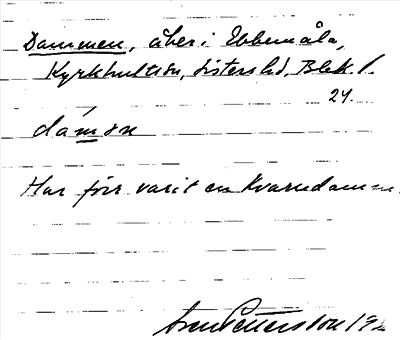 Dammen, åker i Ebbemåla,
Kyrkhults sn, Listers hd, Blek. l.
24.
dámən
Har förr varit en kvarndamm.
Pettersson 19